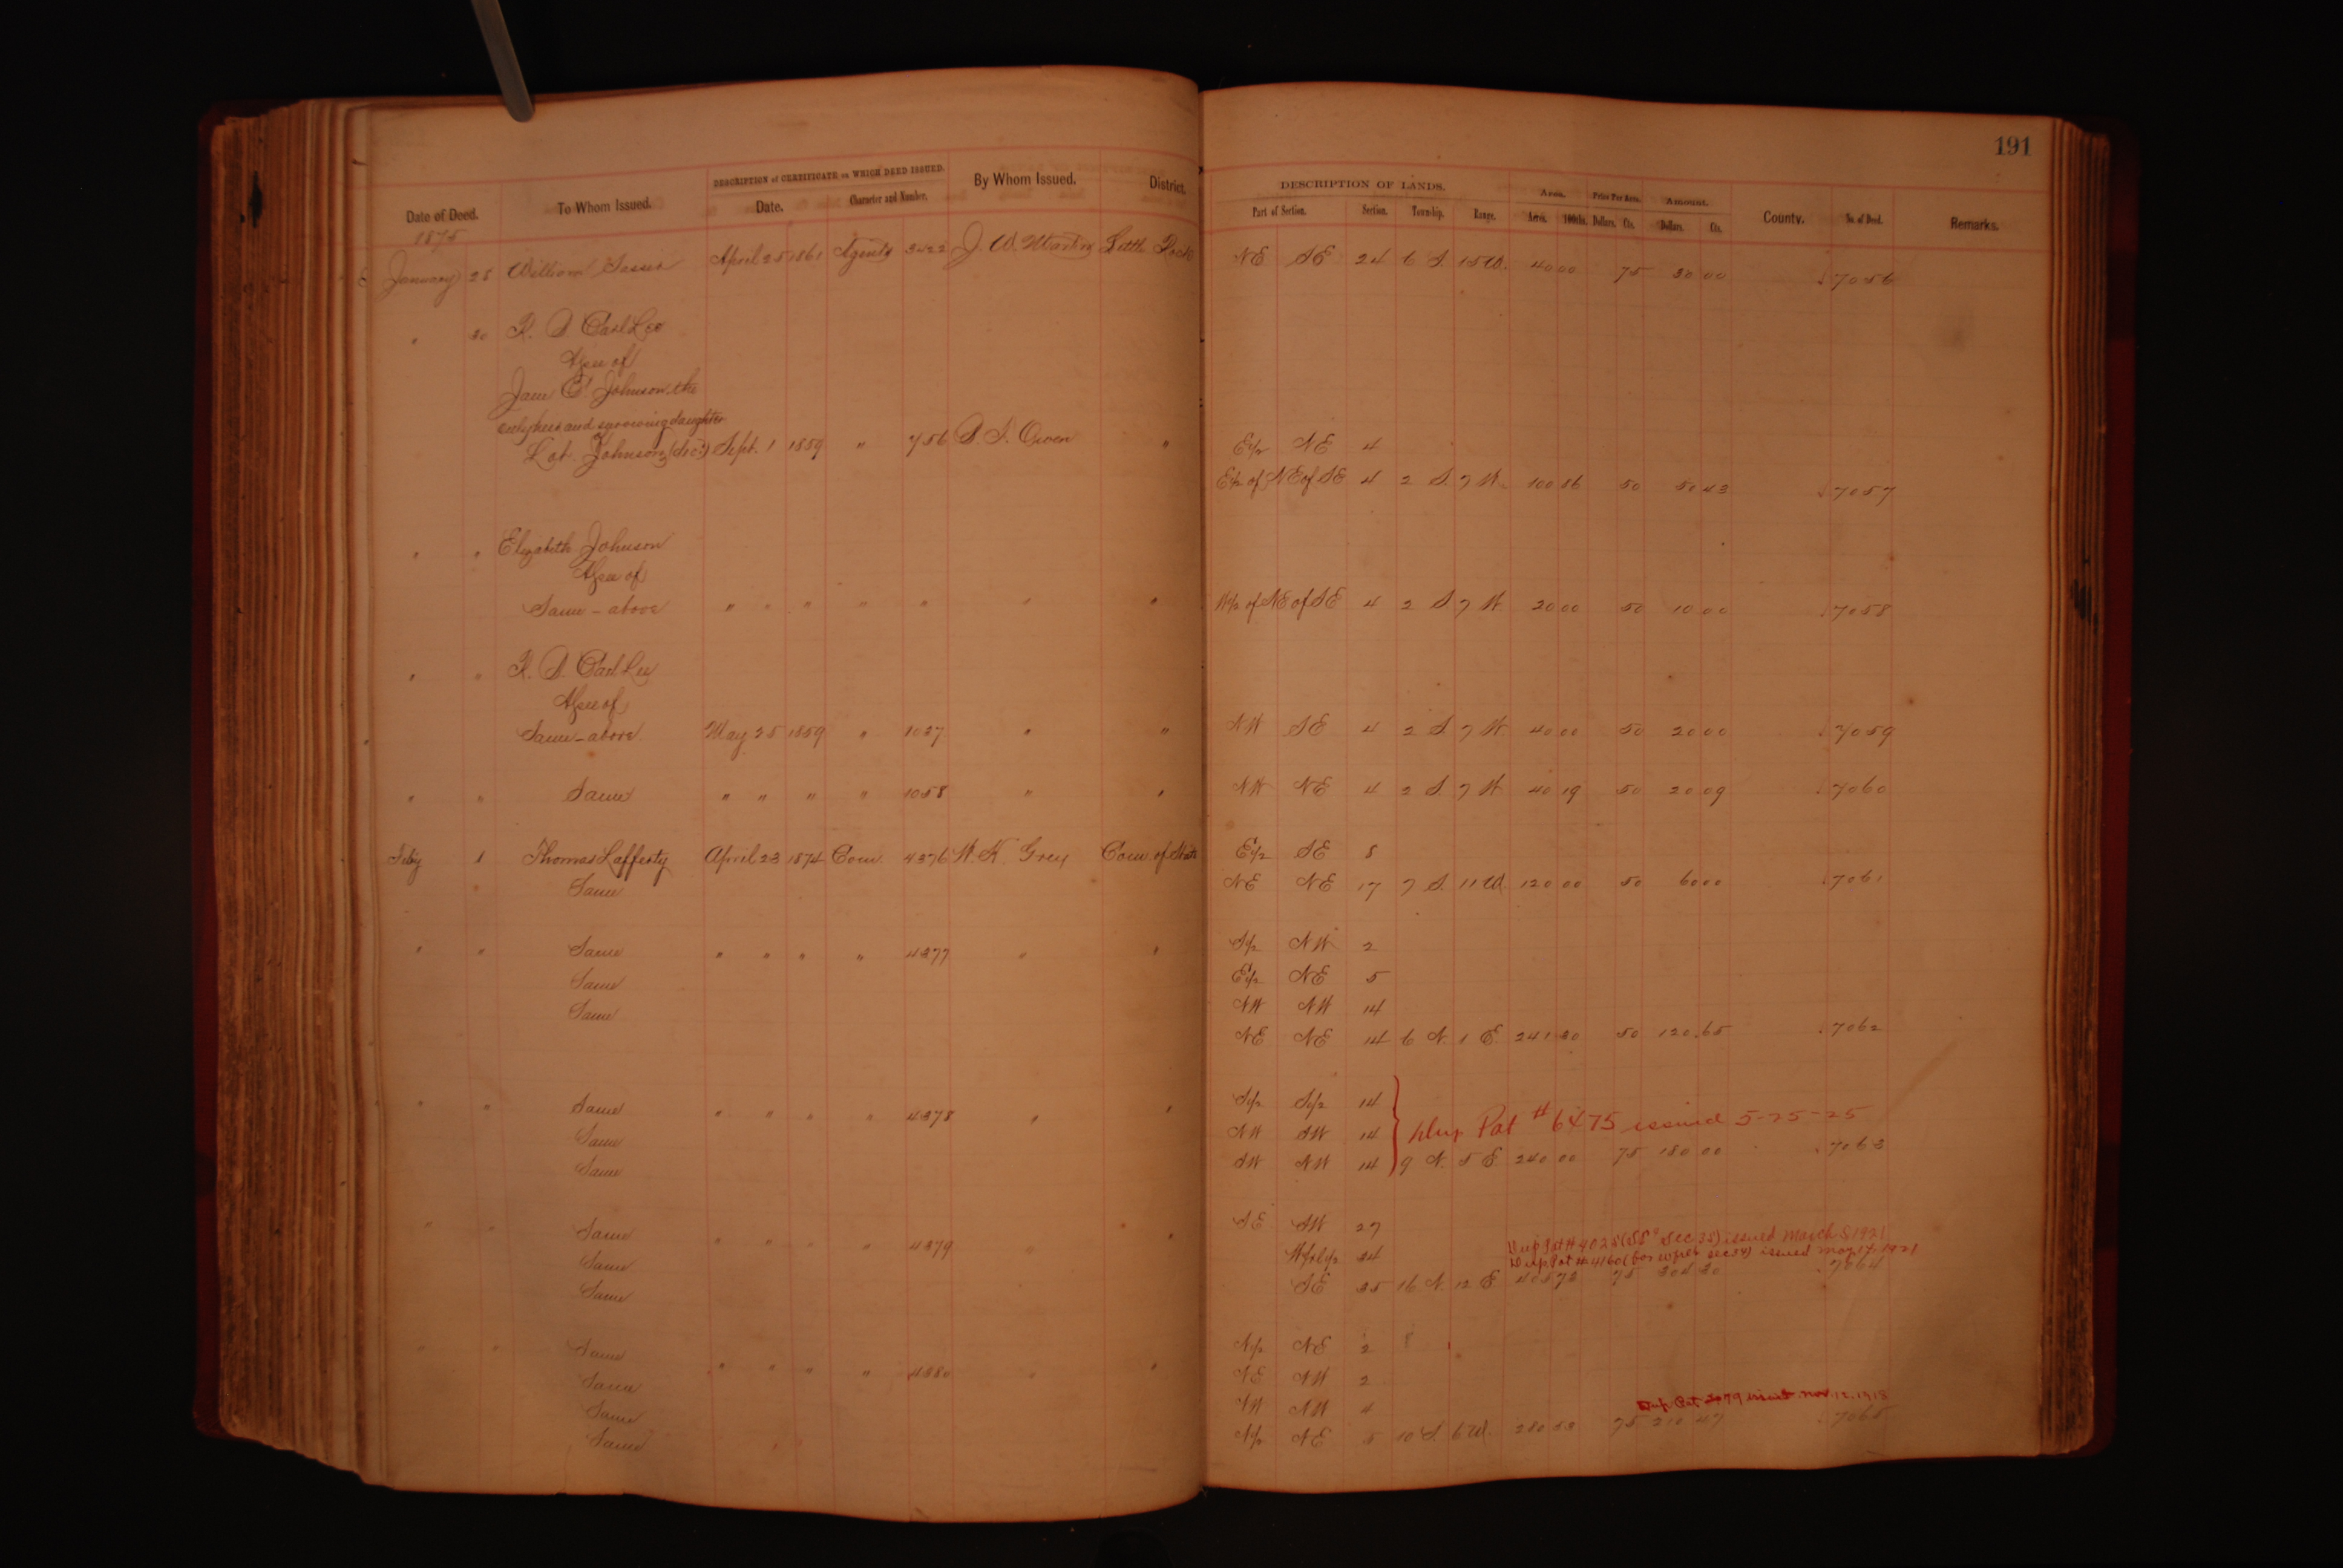 191
DESCRIPTION of CERTIFICATE on WHICH DEED ISSUED.
Date of Deed. To Whom Issued. Date. Character and Number. By Whom Issued. District.
DESCRIPTION OF LANDS. Area. Price Per Acre. Amount.
Part of Section. Section. Township. Range. Acres. 100ths. Dollars. Cts. Dollars. Cts. County. No. of Deed. Remarks.
1875
January 28 William April 25 1861 Agents 3422 J. W. Martin Little Rock NE SE 24 6 S. 15 W. 40 00 75 30 00 7056
" 30 R. S. Carl Lee
Asee of
Jane C. Johnson, the
only heir and surviving daughter
Lot Johnson (dec'd) Sept. 1 1859 " 756 D. S. Owen " E1/2 NE 4
E1/2 of NE of SE 4 2 S. 7 W. 100 86 50 50 43 7057
" " Elizabeth Johnson
Asee of
Same - above " " " " " " " W1/2 of NE of SE 4 2 S 7 W 20 00 50 10 00 7058
" " R. S. Carl Lee
Asee of
Same - above May 25 1859 " 1037 " " NW SE 4 2 S 7 W 40 00 50 20 00 7059
" " Same " " " " 1058 " " NW NE 4 2 S. 7 W 40 19 50 20 09 7060
Feby 1 Thomas Lafferty April 23 1874 Com 4376 W. K. Grey Com of E1/2 SE 8
Same NE NE 17 7 S. 11 W. 120 00 50 60 00 7061
" " Same " " " " 4377 " " S1/2 NW 2
Same E1/2 NE 5
Same NW NW 14
NE NE 14 6 N. 1 E. 241 30 50 120.65 7062
" " Same " " " " 4378 " " S1/2 S1/2 14
Same NW SW 14 Dup Pat # 6475 issued 5-25-25
Same SW NW 14 9 N. 5 E. 240 00 75 180 00 7063
" " Same " " " " 4379 " " SE SW 27
Dup Pat # 4028 (SE Sec 35) issued March 1921
Same 34 Dup Pat # 4160 (for sec 34) issued May 17-1921
Same SE 35 16 N. 12 E 405 72 75 304 30 7064
" " Same " " " " 4380 " " N1/2 NE 2
Same NE NW 2
Same NW NW 4 Dup Pat issued Nov. 12. 1918
Same N1/2 NE 5 10 S. 6 W. 280 53 75 210 47 7065